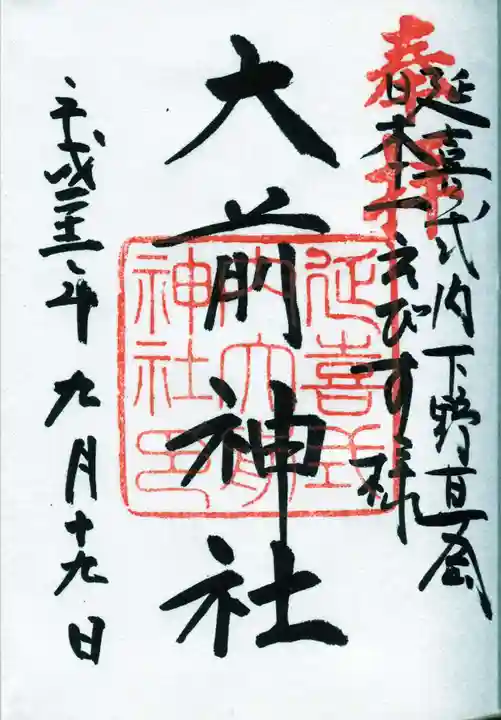 延喜式内下野
奉拝
日本一えびす様
大前神社
延喜式
内大前
神社印
平成二十三年九月十九日